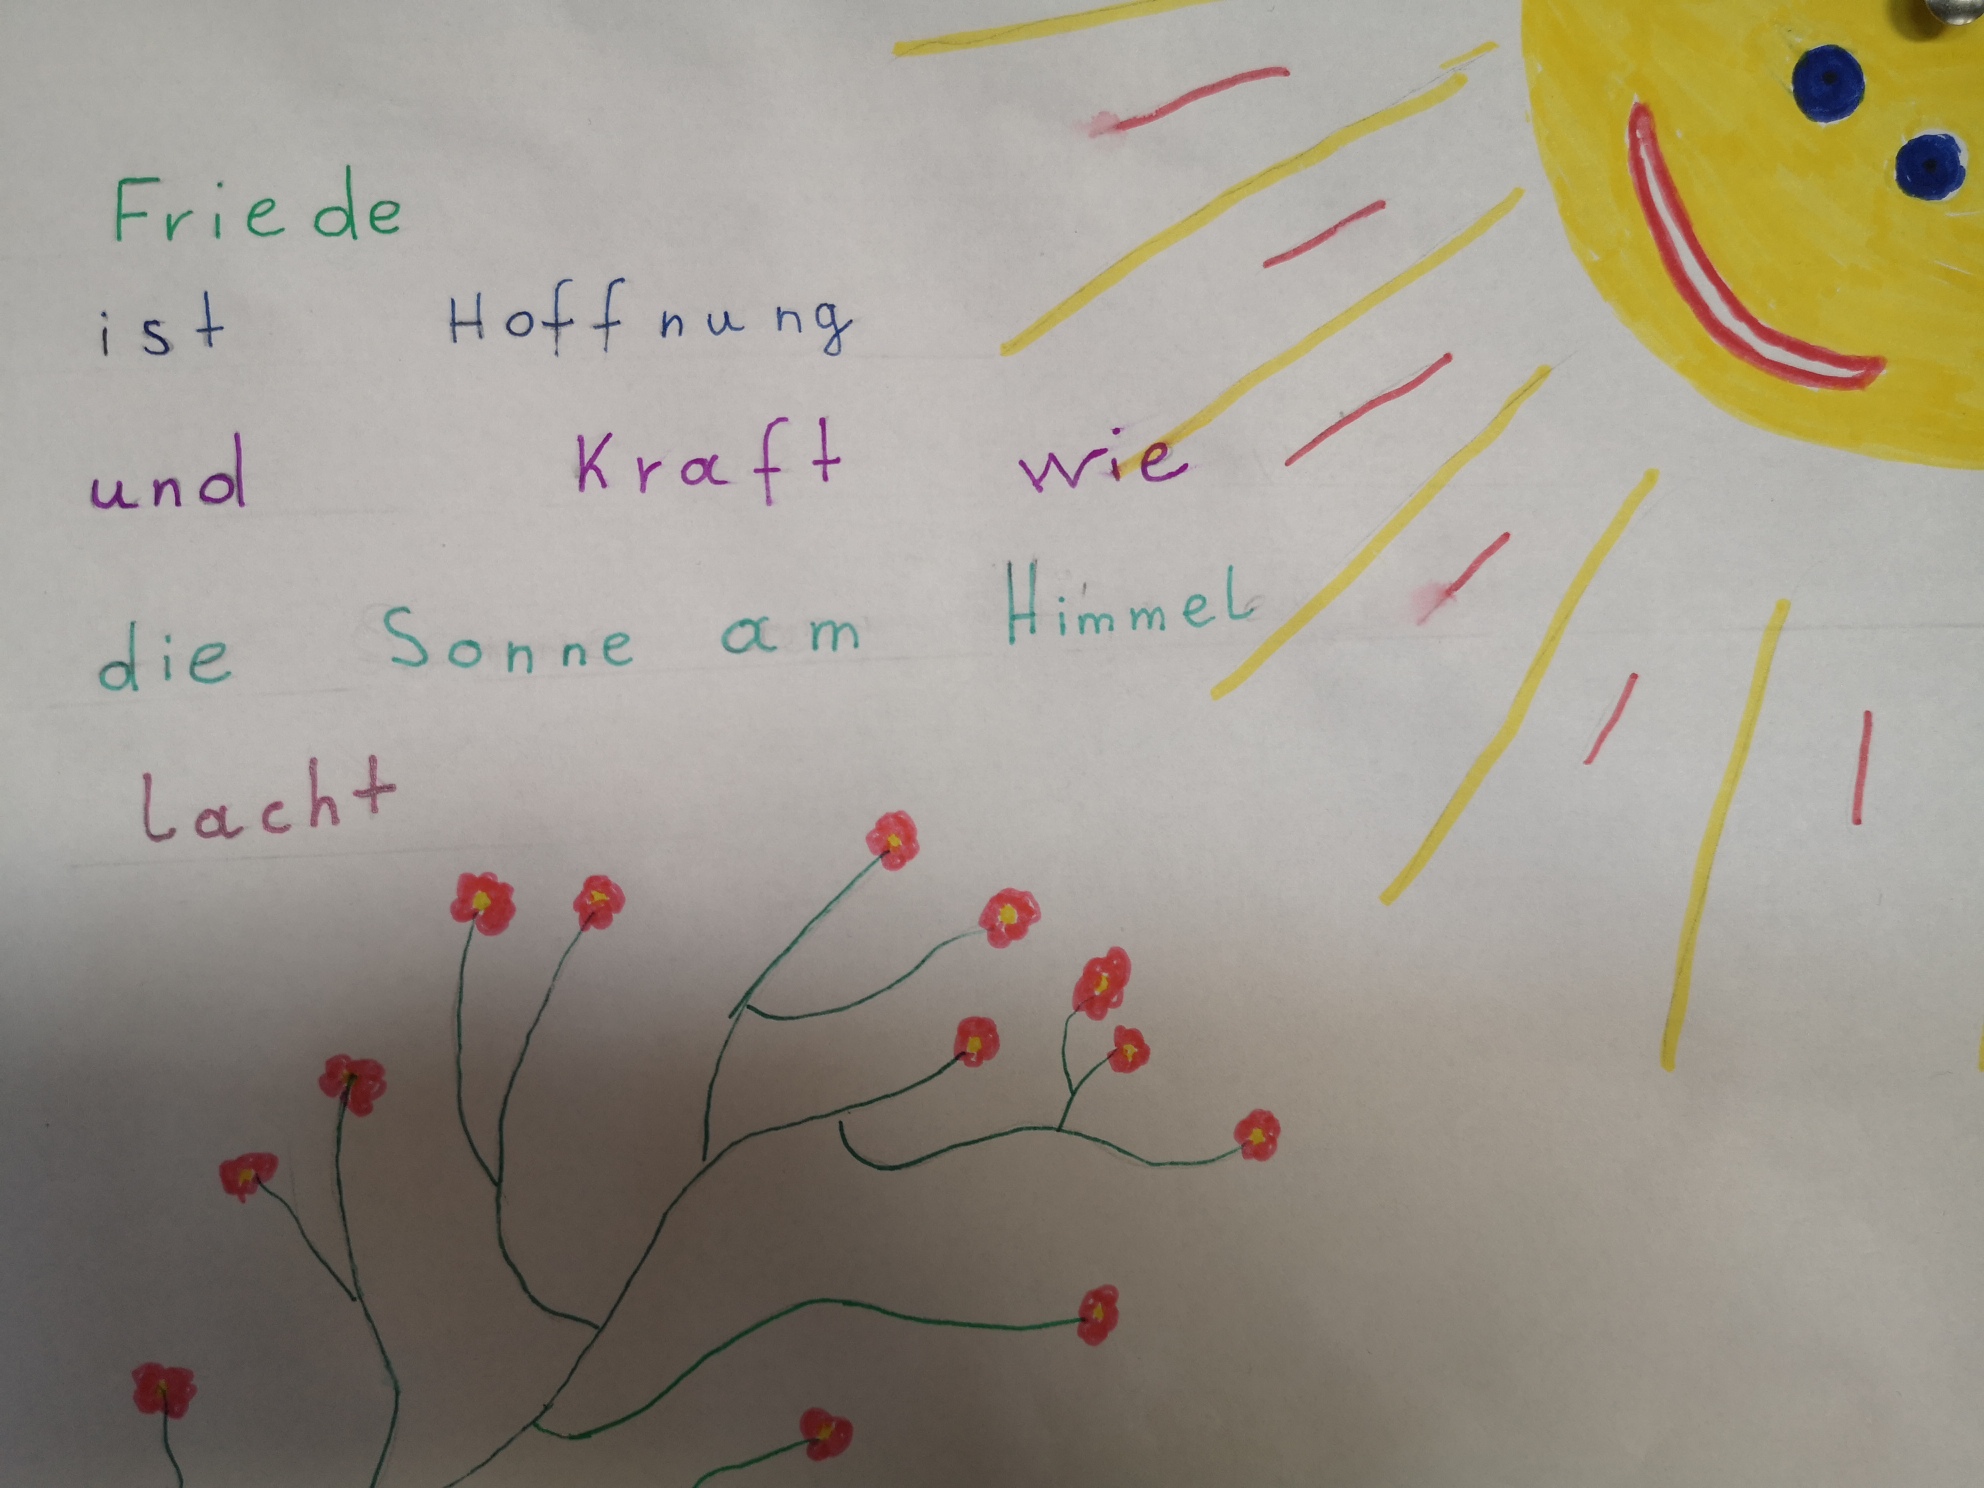 Friede
ist Hoffnung
und Kraft wie
die Sonne am Himmel
lacht